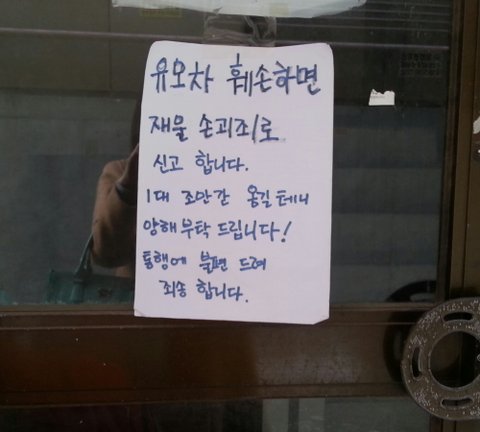 유모차 훼손하면
재물 손괴죄로
신고 합니다.
1대 조만간 옮길테니
양해부탁 드립니다!
통행에 불편 드려
죄송 합니다.